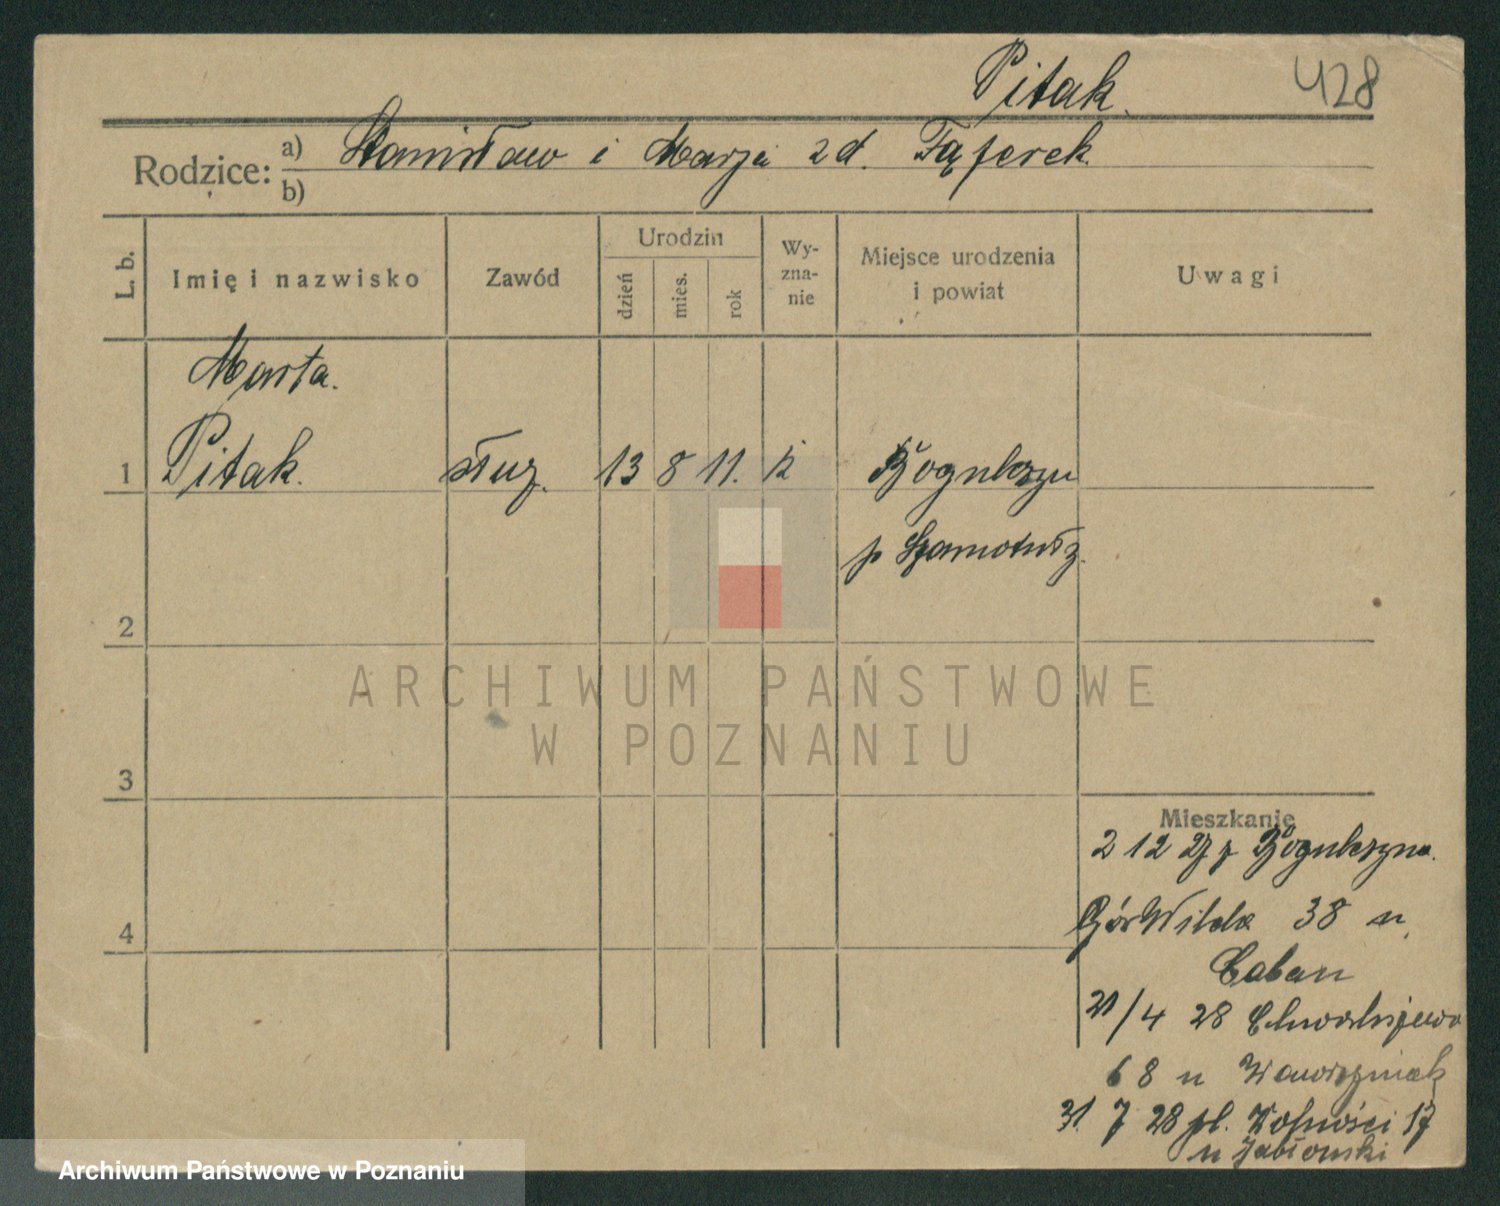 Pitak.
428
Rodzice: a) Stanisław i Marja zd.
b)
L. b.
Imię i nazwisko
Zawód
Urodzin
dzień
mies.
rok
Wy-
zna-
nie
Miejsce urodzenia
i powiat
Uwagi
Marta.
1 Pitak. służ. 13 8 11. k
p Szamotuły.
2
3
4
ARCHIWUM PAŃSTWOWE
W POZNANIU
Mieszkanie
2 12 27 z
Gór Wilda 38 u
Caban
21/4 28
68 u Wawrzyniak
31. 7 28 pl. Wolności 17
u Jabłonski
Archiwum Państwowe w Poznaniu